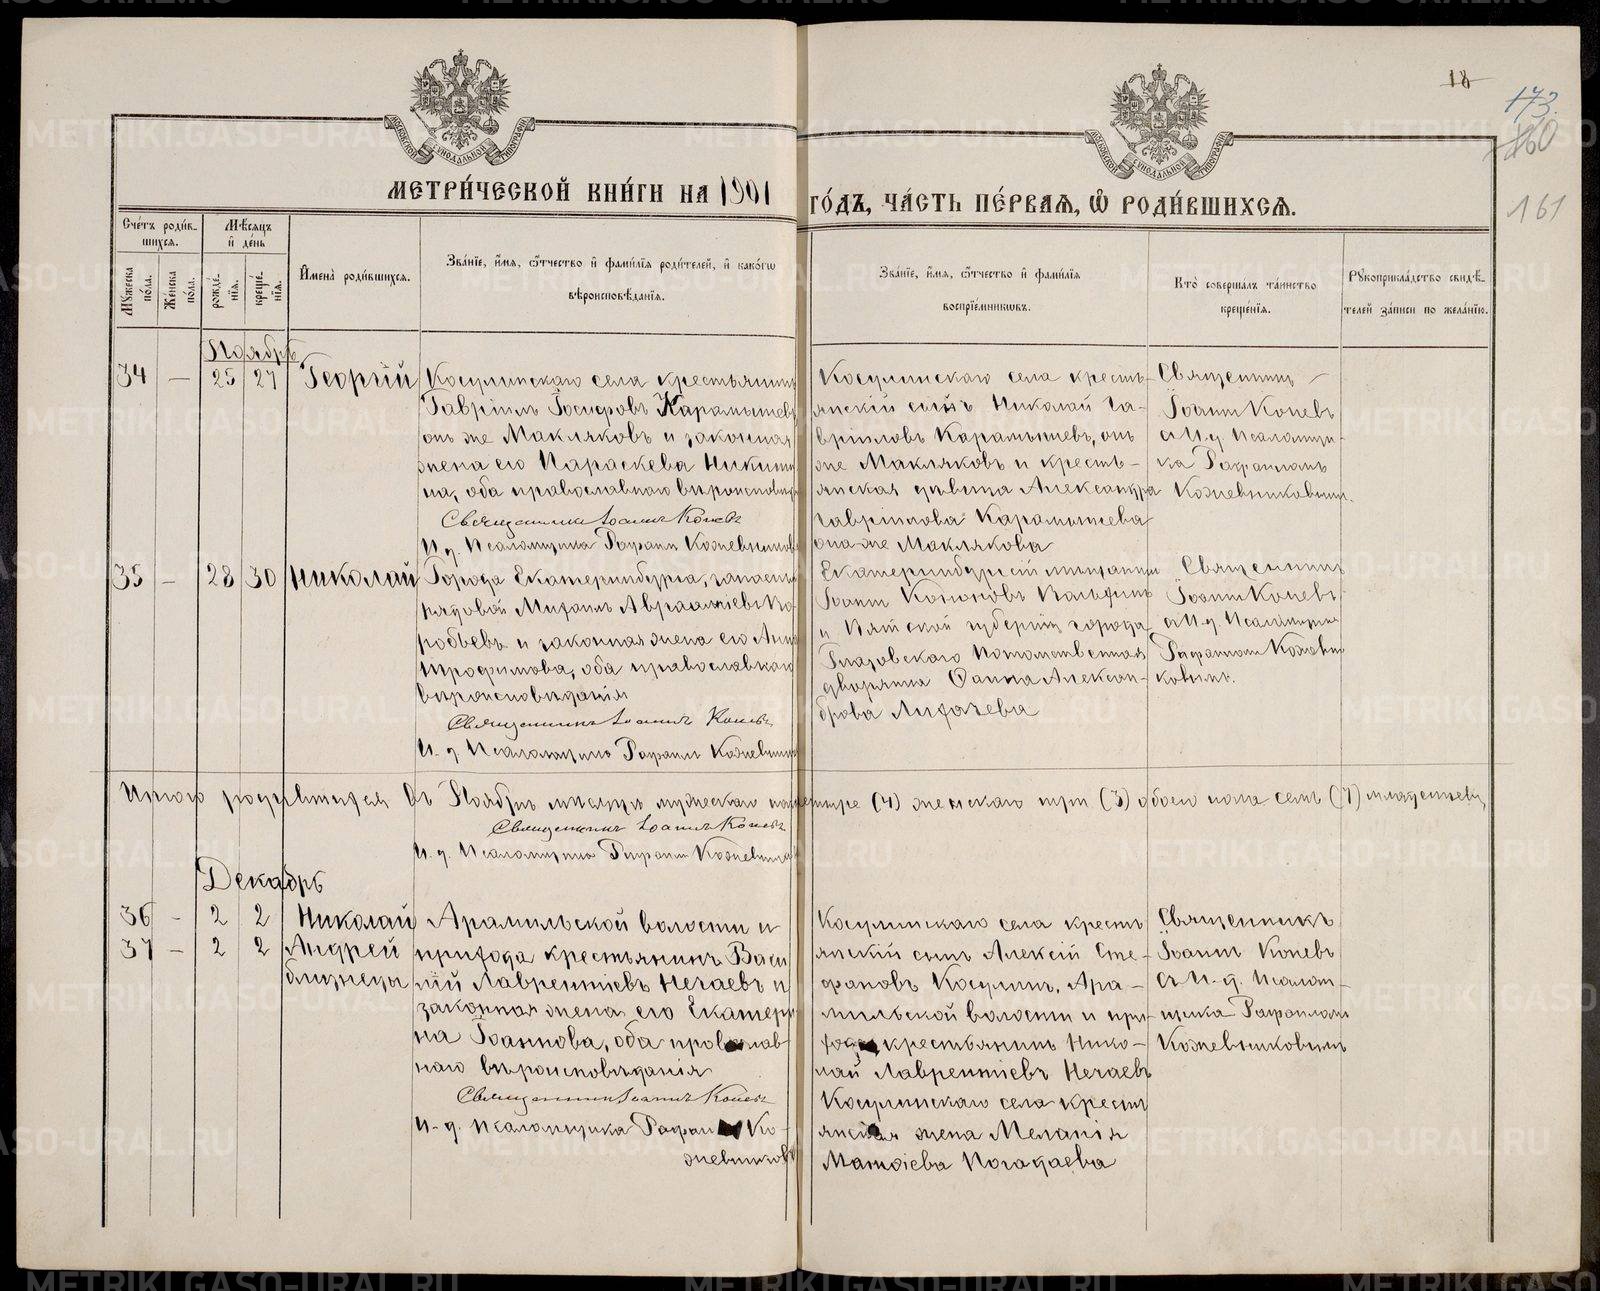 18
173.
160
161
МОСКОВСКОЙ СУНОДАЛЬНОЙ ТИПОГРАФІИ
МОСКОВСКОЙ СУНОДАЛЬНОЙ ТИПОГРАФІИ
МЕТРИ́ЧЕСКОЙ КНИ́ГИ НА 1901 ГО́ДЪ, ЧА́СТЬ ПЕ́РВАѦ, Ѿ РОДИ́ВШИХСѦ.
Сче́тъ роди́в-
шихсѧ.
Мꙋ́жеска
по́ла.
Же́нска
по́ла.
Мѣ́сѧцъ
и҆ де́нь
рожде́-
нїѧ.
креще́-
нїѧ.
И҆мена̀ роди́вшихсѧ.
Зва́нїе, и҆́мѧ, ѻ҆́тчество и҆ фами́лїѧ роди́телей, и҆ како́гѡ
вѣроисповѣ́данїѧ.
Зва́нїе, и҆́мѧ, ѻ҆́тчество и҆ фами́лїѧ
воспрїе́мникѡвъ.
Кто̀ соверша́лъ та́инство
креще́нїѧ.
Рꙋкоприкла́дство свидѣ́-
телей за́писи по жела́нїю.
Ноябрь
34 — 25 27 Георгій
Косулинскаго села крестьянинъ
Гавріилъ Іосифовъ Карамышевъ
онъ же Макляковъ и законная
жена его Параскева Никити
на, оба православнаго вѣроисповѣд
Священникъ Іоаннъ Коневъ
И. д. Псаломщика Рафаилъ Кожевников
Косулинскаго села кресть-
янскій сынъ Николай Га-
вріиловъ Карамышевъ, онъ
же Макляковъ и кресть-
янская дѣвица Александра
Гавріилова Карамышева
она же Маклякова
Священникъ
Іоаннъ Коневъ
съ И. д. Псаломщи-
ка Рафаиломъ
Кожевниковымъ.
35 — 28 30 Николай
Города Екатеринбурга, запасный
рядовой Михаилъ Аврааміевъ Во
робьевъ и законная жена его Анна
Трофимова, оба православнаго
вѣроисповѣданія
Священникъ Іоаннъ Коневъ
И. д. Псаломщика Рафаилъ Кожевник
Екатеринбургскій мѣщанинъ
Іоаннъ
и Вятской губерніи города
Глазовскаго потомственная
дворянка Фаина Алексан-
дрова Лихачева
Священникъ
Іоаннъ Коневъ
съ И. д. Псаломщика
Рафаиломъ Кожевни
ковымъ.
Итого родившихся въ Ноябрѣ мѣсяцѣ мужескаго пола четыре (4) женскаго три (3) обоего пола семь (7) младенцевъ
Священникъ Іоаннъ Коневъ
И. д. Псаломщика Рафаилъ Кожевников
Декабрь
36 — 2 2 Николай
37 — 2 2 Андрей
близнецы
Арамильской волости и
прихода крестьянинъ Васи
лій Лаврентіевъ Нечаевъ и
законная жена его Екатери
на Іоаннова, оба православ-
наго вѣроисповѣданія
Священникъ Іоаннъ Коневъ
И. д. Псаломщика Рафаилъ Ко-
жевниковъ
Косулинскаго села кресть
янскій сынъ Алексій Сте-
фановъ Косулинъ, Ара-
мильской волости и при-
хода крестьянинъ Нико-
лай Лаврентіевъ Нечаевъ
Косулинскаго села кресть
янская жена Меланія
Матѳіева Погадаева
Священникъ
Іоаннъ Коневъ
съ И. д. Псалом-
щика Рафаиломъ
Кожевниковымъ
METRIKI.GASO-URAL.RU